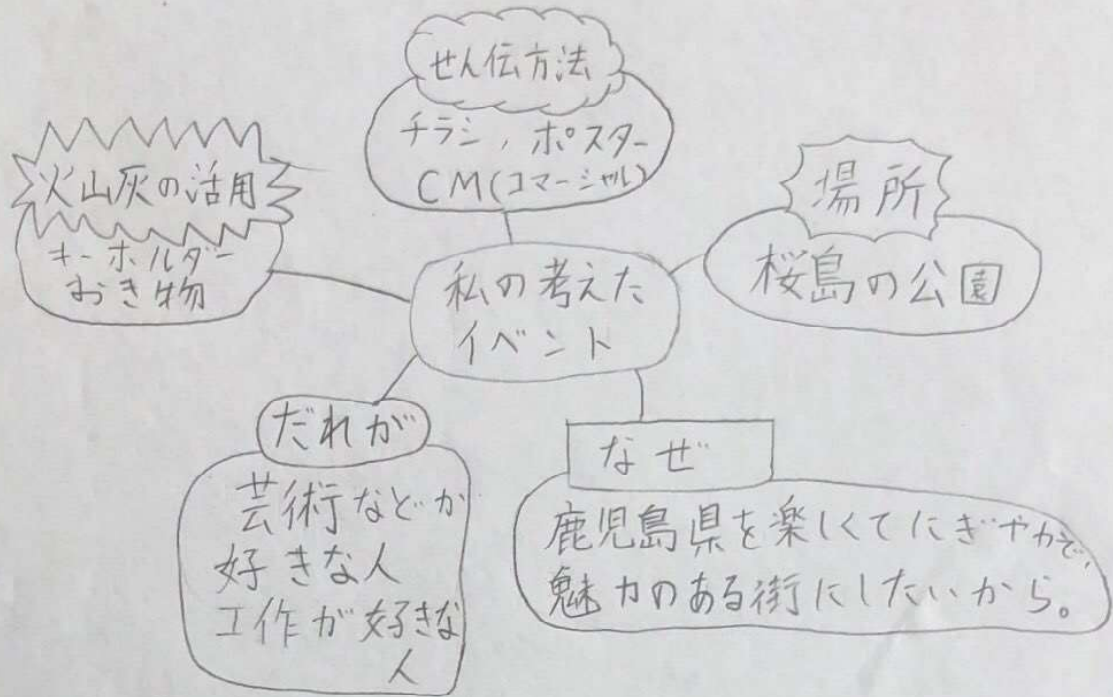 せん伝方法
チラシ,ポスター
CM(コマーシャル)
火山灰の活用
キーホルダー
おき物
場所
桜島の公園
私の考えた
イベント
だれが
芸術などが
好きな人
工作が好きな
人
なぜ
鹿児島県を楽しくてにぎやかで、
魅力のある街にしたいから。